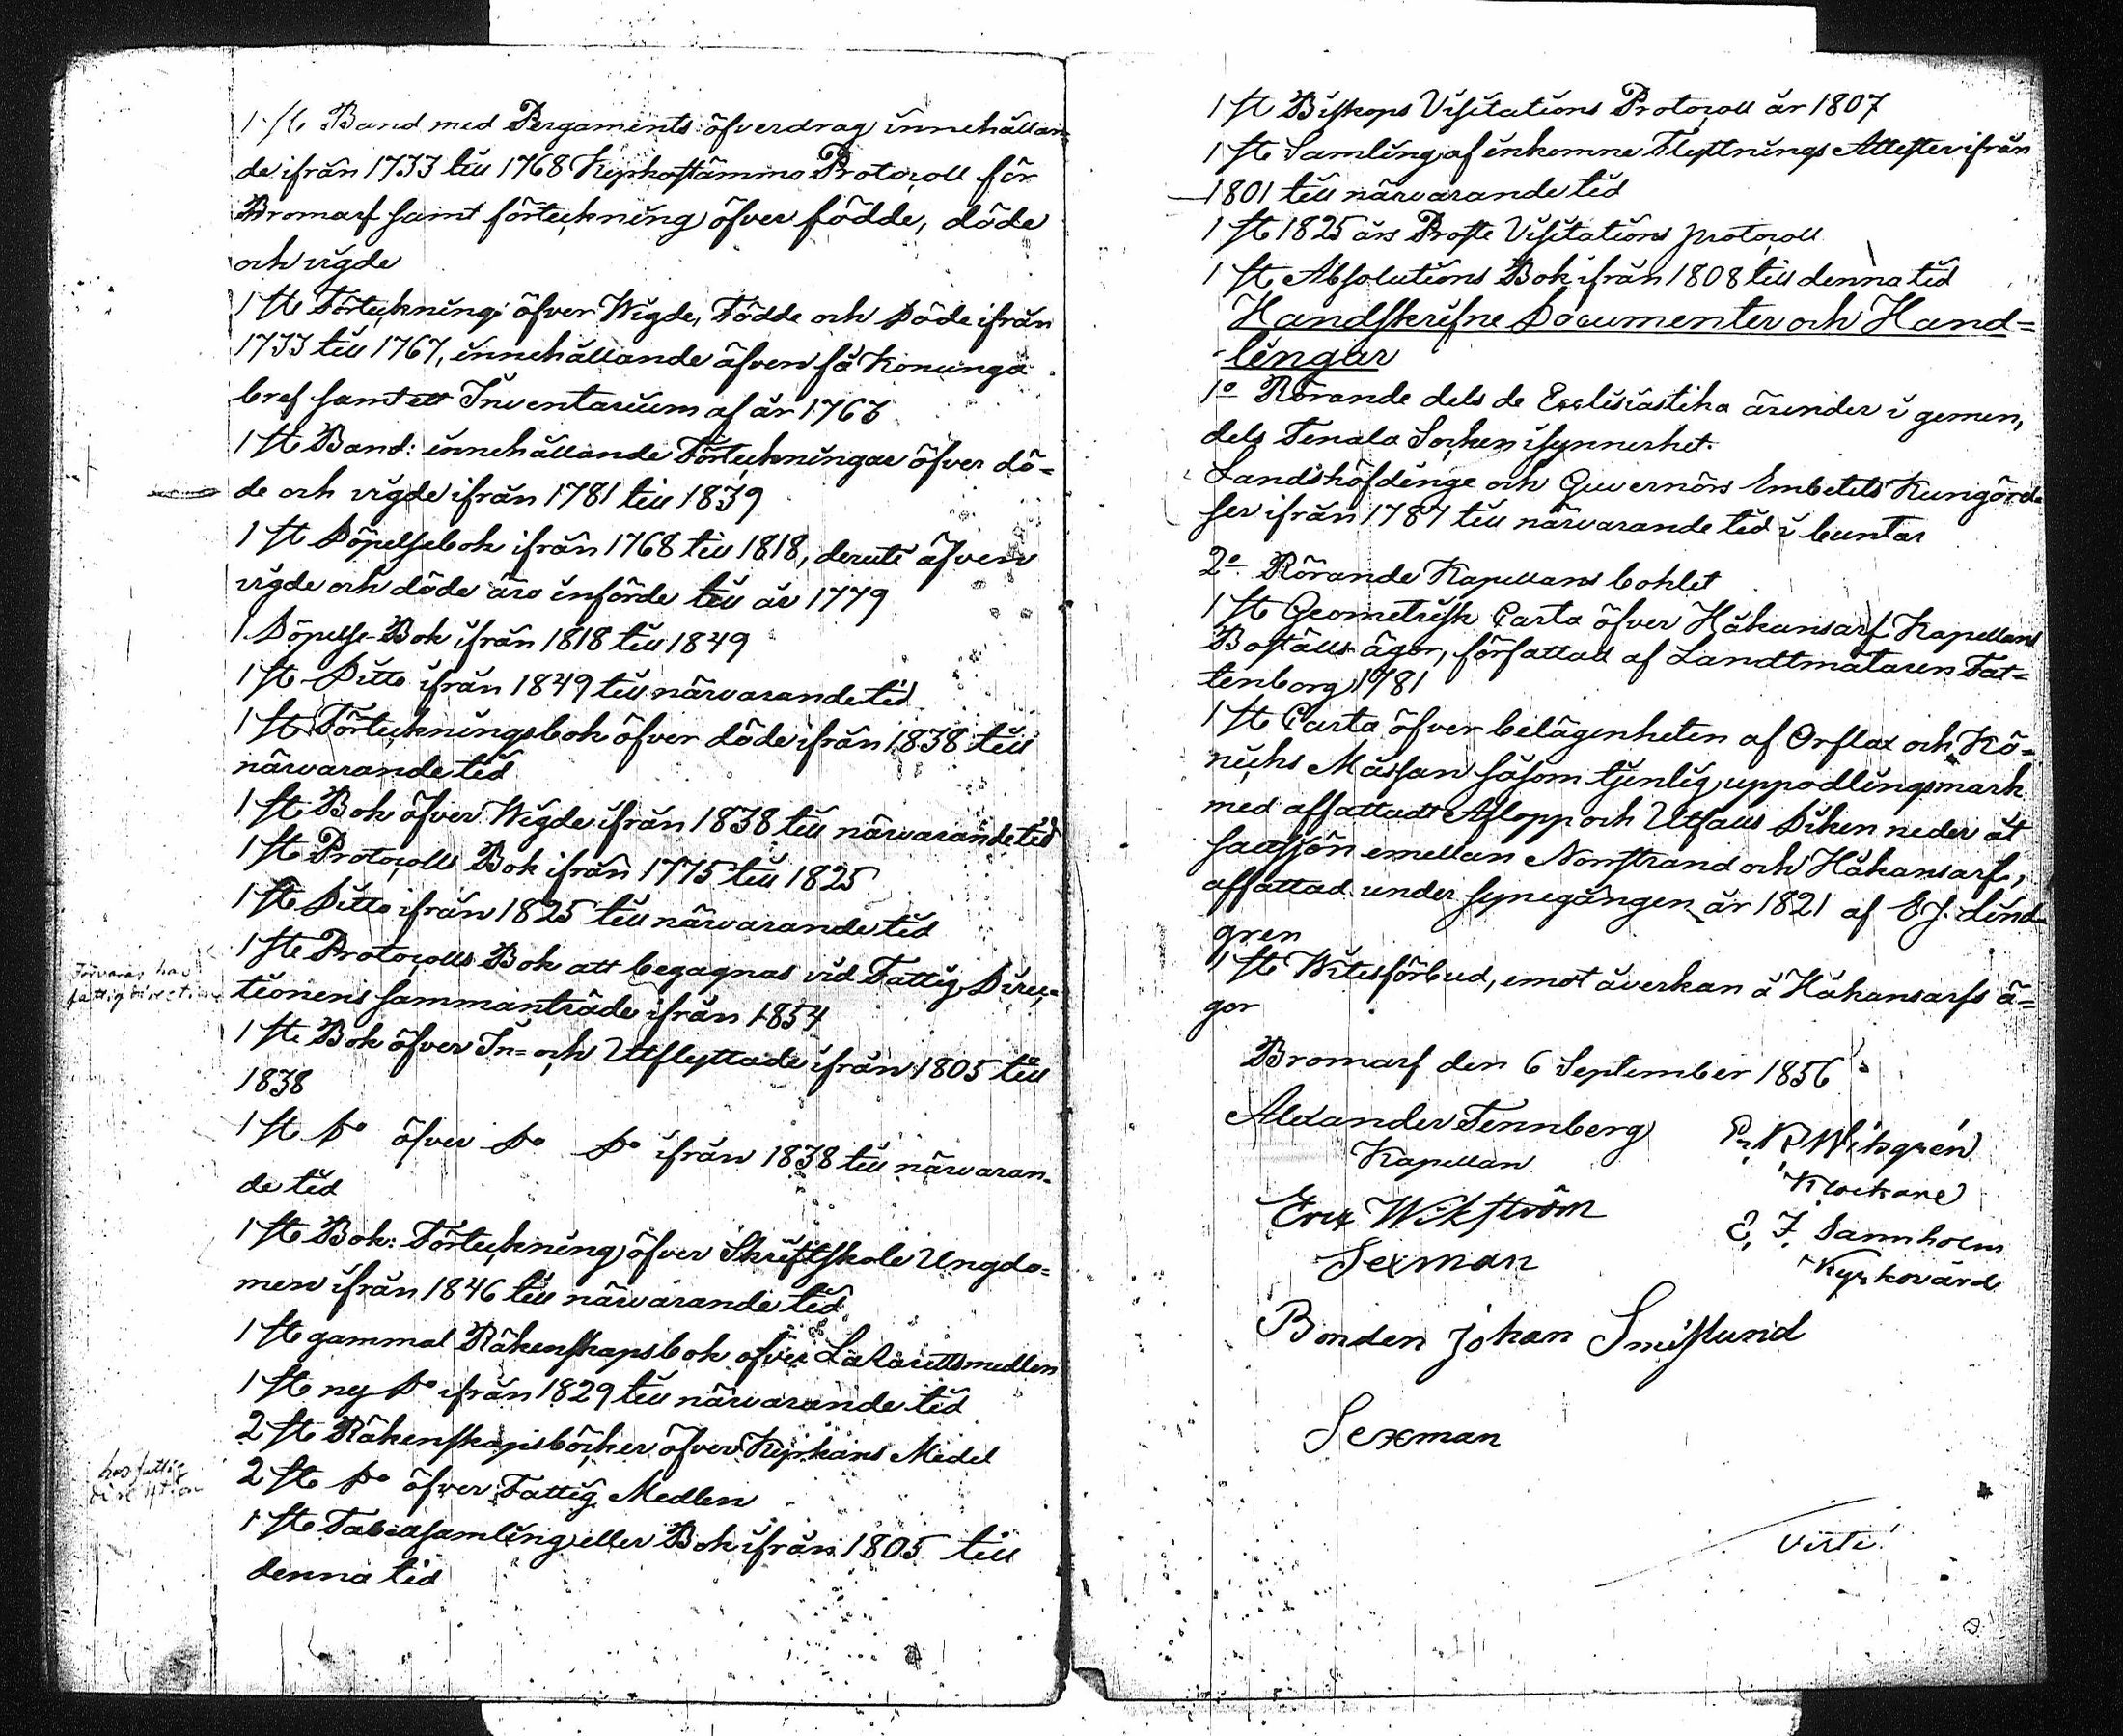 1 st. Band med Pergaments öfverdrag innehållan-
de ifrån 1733 till 1768 Kyrkostämmo Protocoll för
Bromarf samt förteckning öfver födde, döde
och vigde
1 st. Förteckning öfver Wigde, Födde och Döde ifrån
1733 till 1767, innehållande äfven få Konunga
bref samt ett Inventarium af år 1763
1 st. Band: innehållande Förteckningar öfver dö=
de och vigde ifrån 1781 till 1839
1 st Döpelsebok ifrån 1768 till 1818, deruti äfven
vigde och döde äro införde till år 1779
1 Döpelse-Bok ifrån 1818 till 1849
1 st. Ditto ifrån 1849 till närvarande tid
1 st. Förteckningsbok öfver döde ifrån 1838 till
närvarande tid
1 st Bok öfver Wigde ifrån 1838 till närvarande tid
1 st. Protocolls Bok ifrån 1775 till 1825
1 st Ditto ifrån 1825 till närvarande tid
Förvaras hos
fattigdirection
1 st. Protocolls Bok att begagnas vid Fattig Direc=
tionens sammanträde ifrån 1854
1 st. Bok öfver In= och Utflyttade ifrån 1805 till
1838
1 st. Do öfver Do Do ifrån 1838 till närvaran-
de tid
1 st. Bok: Förteckning öfver Skriftskole Ungdo=
men ifrån 1846 till närvarande tid
1 st. gammal Räkenskapsbok öfver Lazarettsmedlen
1 st. ny Do ifrån 1829 till närvarande tid
2 st. Räkenskapsböcker öfver Kyrkans Medel
hos fattig
direction
2 st. Do öfver Fattig Medlen
1 st. Tabellsamling eller Bok ifrån 1805 till
denna tid
1 st Biskops Visitations Protocoll år 1807
1 st. Samling af inkomne Flyttnings Attester ifrån
1801 till närvarande tid
1 st. 1825 års Proste Visitations protocoll
1 st. Absolutions Bok ifrån 1808 till denna tid
Handskrifne Documenter och Hand=
lingar
1o Rörande dels de Ecclesiastika ärender i gemen,
dels Tenala Socken i synnerhet.
Landshöfdinge och Guvernörs Embetets Kungörel-
ser ifrån 1787 till närvarande tid i buntar
2o Rörande Kapellans bohlet
1 st. Geometrisk Carta öfver Håkansarf Kapellans
Boställs ägor, författad af Landtmätaren Tat=
tenborg 1781
1 st Carta öfver belägenheten af Orflax och Kö-
nicks Mässan såsom tjenlig uppodlingsmark
med affattadt Aflopp och Utfalls Diken neder åt
saltsjön emellan Norrstrand och Håkansarf,
affattad under synegången år 1821 af E J. Lind-
gren
1 st Witesförbud, emot åverkan å Håkansarfs ä=
gor
Bromarf den 6 September 1856
Alexander Tennberg
Kapellan
Wikgrén
Klockare
Eric Wikström
Sexman
E, F. Dannholm
Kyrkovärd
Bonden Johan Smislund
Sexman